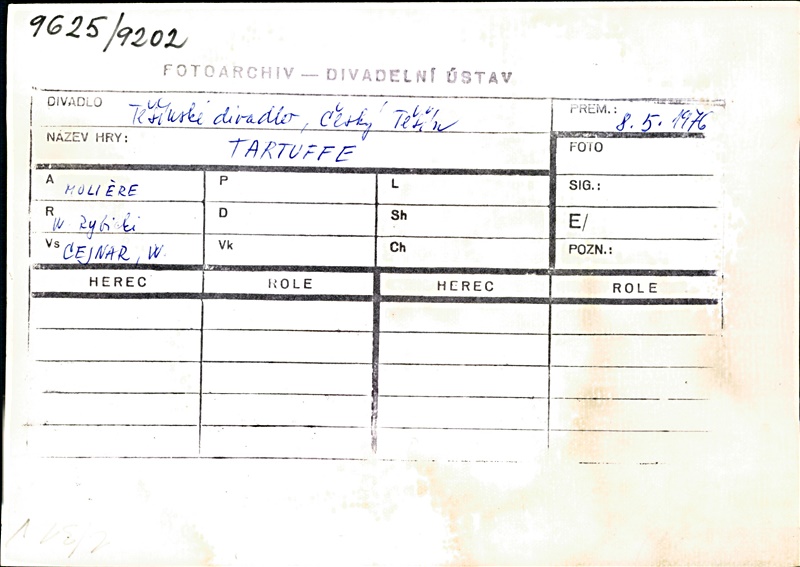 9625/9202
FOTOARCHIV — DIVADELNÍ ÚSTAV
DIVADLO Těšínské divadlo, Český Těšín
PREM.: 8.5.1976
NÁZEV HRY: TARTUFFE
FOTO
A MOLIÈRE P L SIG.:
R W Rybicki D Sh E/
Vs CEJNAR, W. Vk Ch POZN.:
HEREC ROLE HEREC ROLE